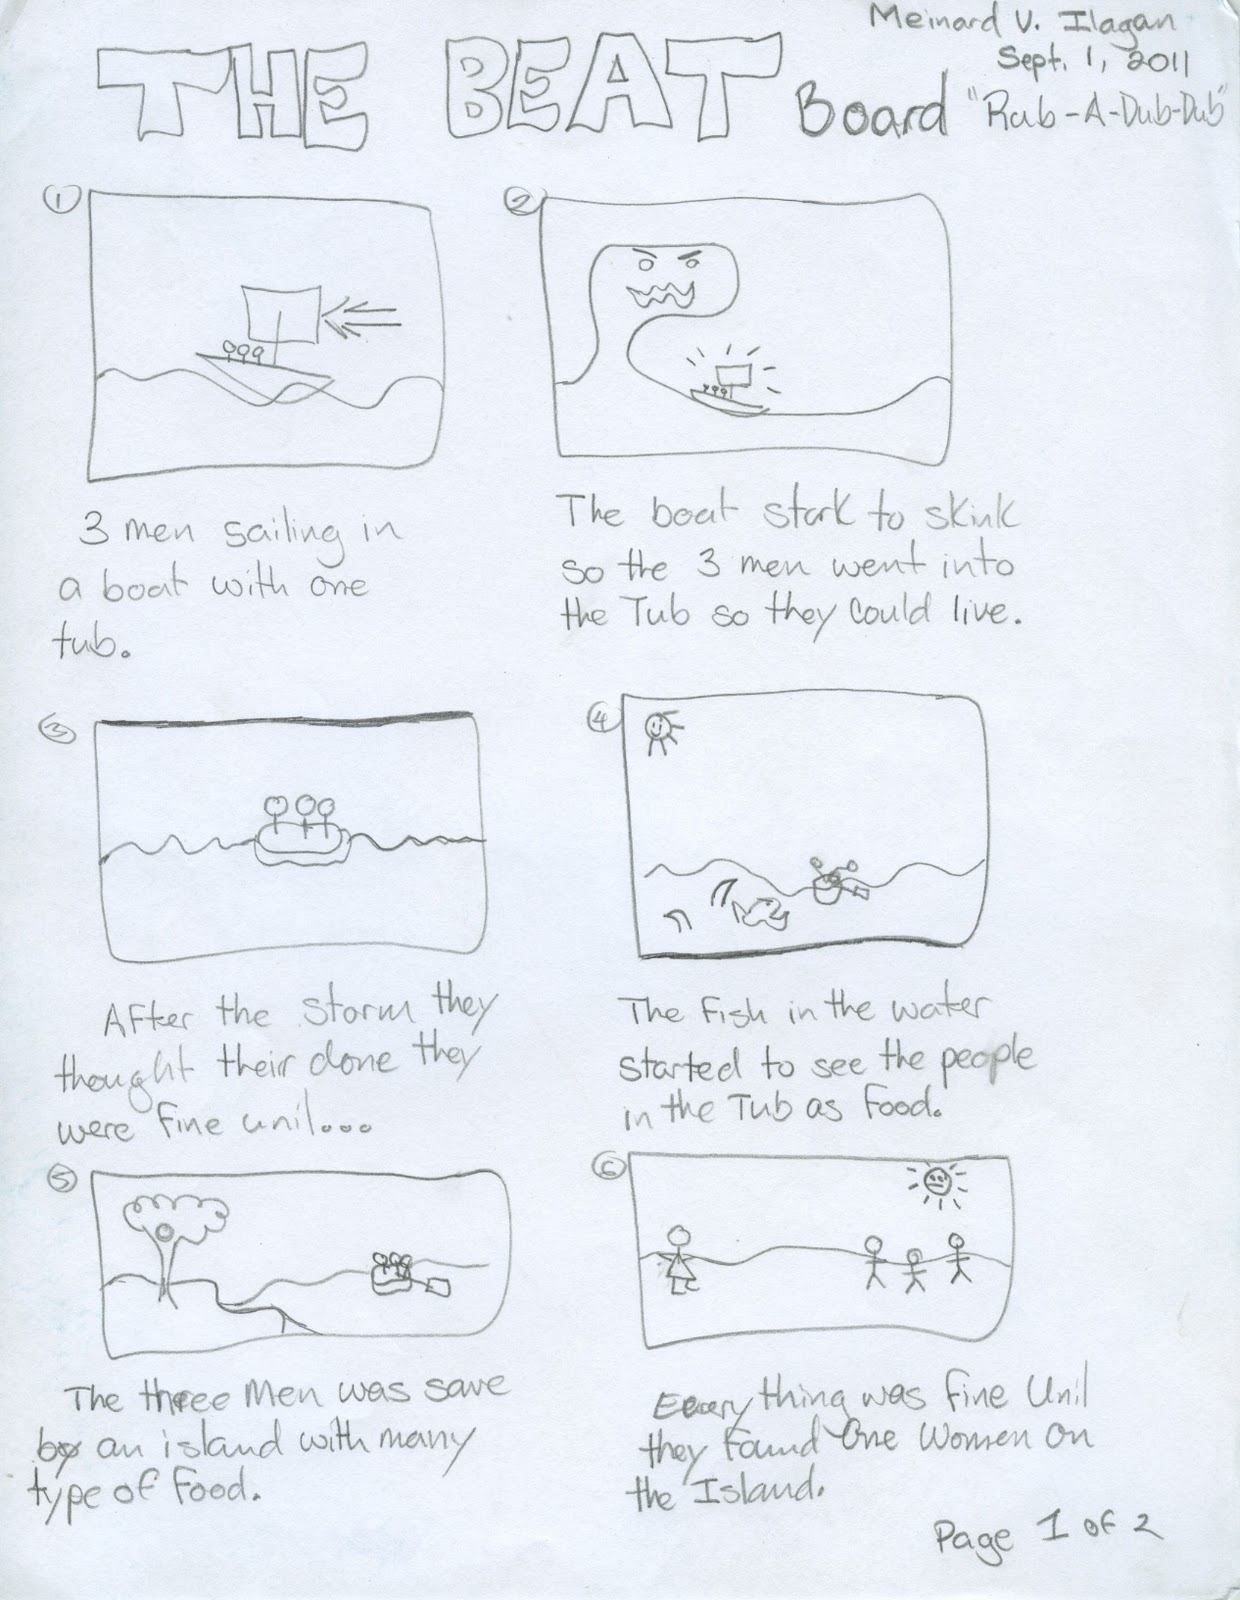 Meinard V. Ilagan
Sept. 1, 2011
THE BEAT Board "Rub-A-Dub-Dub"
1
3 men sailing in
a boat with one
tub.
2
The boat stark to skink
so the 3 men went into
the Tub so they could live.
3
After the storm they
thought their done they
were fine unil...
4
The Fish in the water
started to see the people
in the Tub as Food.
5
The three Men was save
by an island with many
type of Food.
6
Everything was fine Unil
they Found One Women On
the Island.
Page 1 of 2